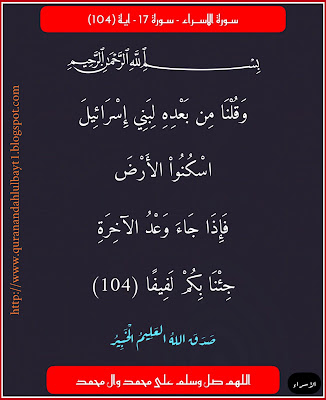 سورة الاسراء - سورة 17 - اية (104)
بِسْمِ اللَّهِ الرَّحْمَٰنِ الرَّحِيمِ
وَقُلْنَا مِن بَعْدِهِ لِبَنِي إِسْرَائِيلَ
اسْكُنُواْ الأَرْضَ
فَإِذَا جَاءَ وَعْدُ الآخِرَةِ
جِئْنَا بِكُمْ لَفِيفًا (104)
صَدَقَ اللهُ العَلِيمُ الْخَبِيرُ
اللهم صل وسلم على محمد وال محمد
الاسراء
http://www.quranandahlulbayt1.blogspot.com